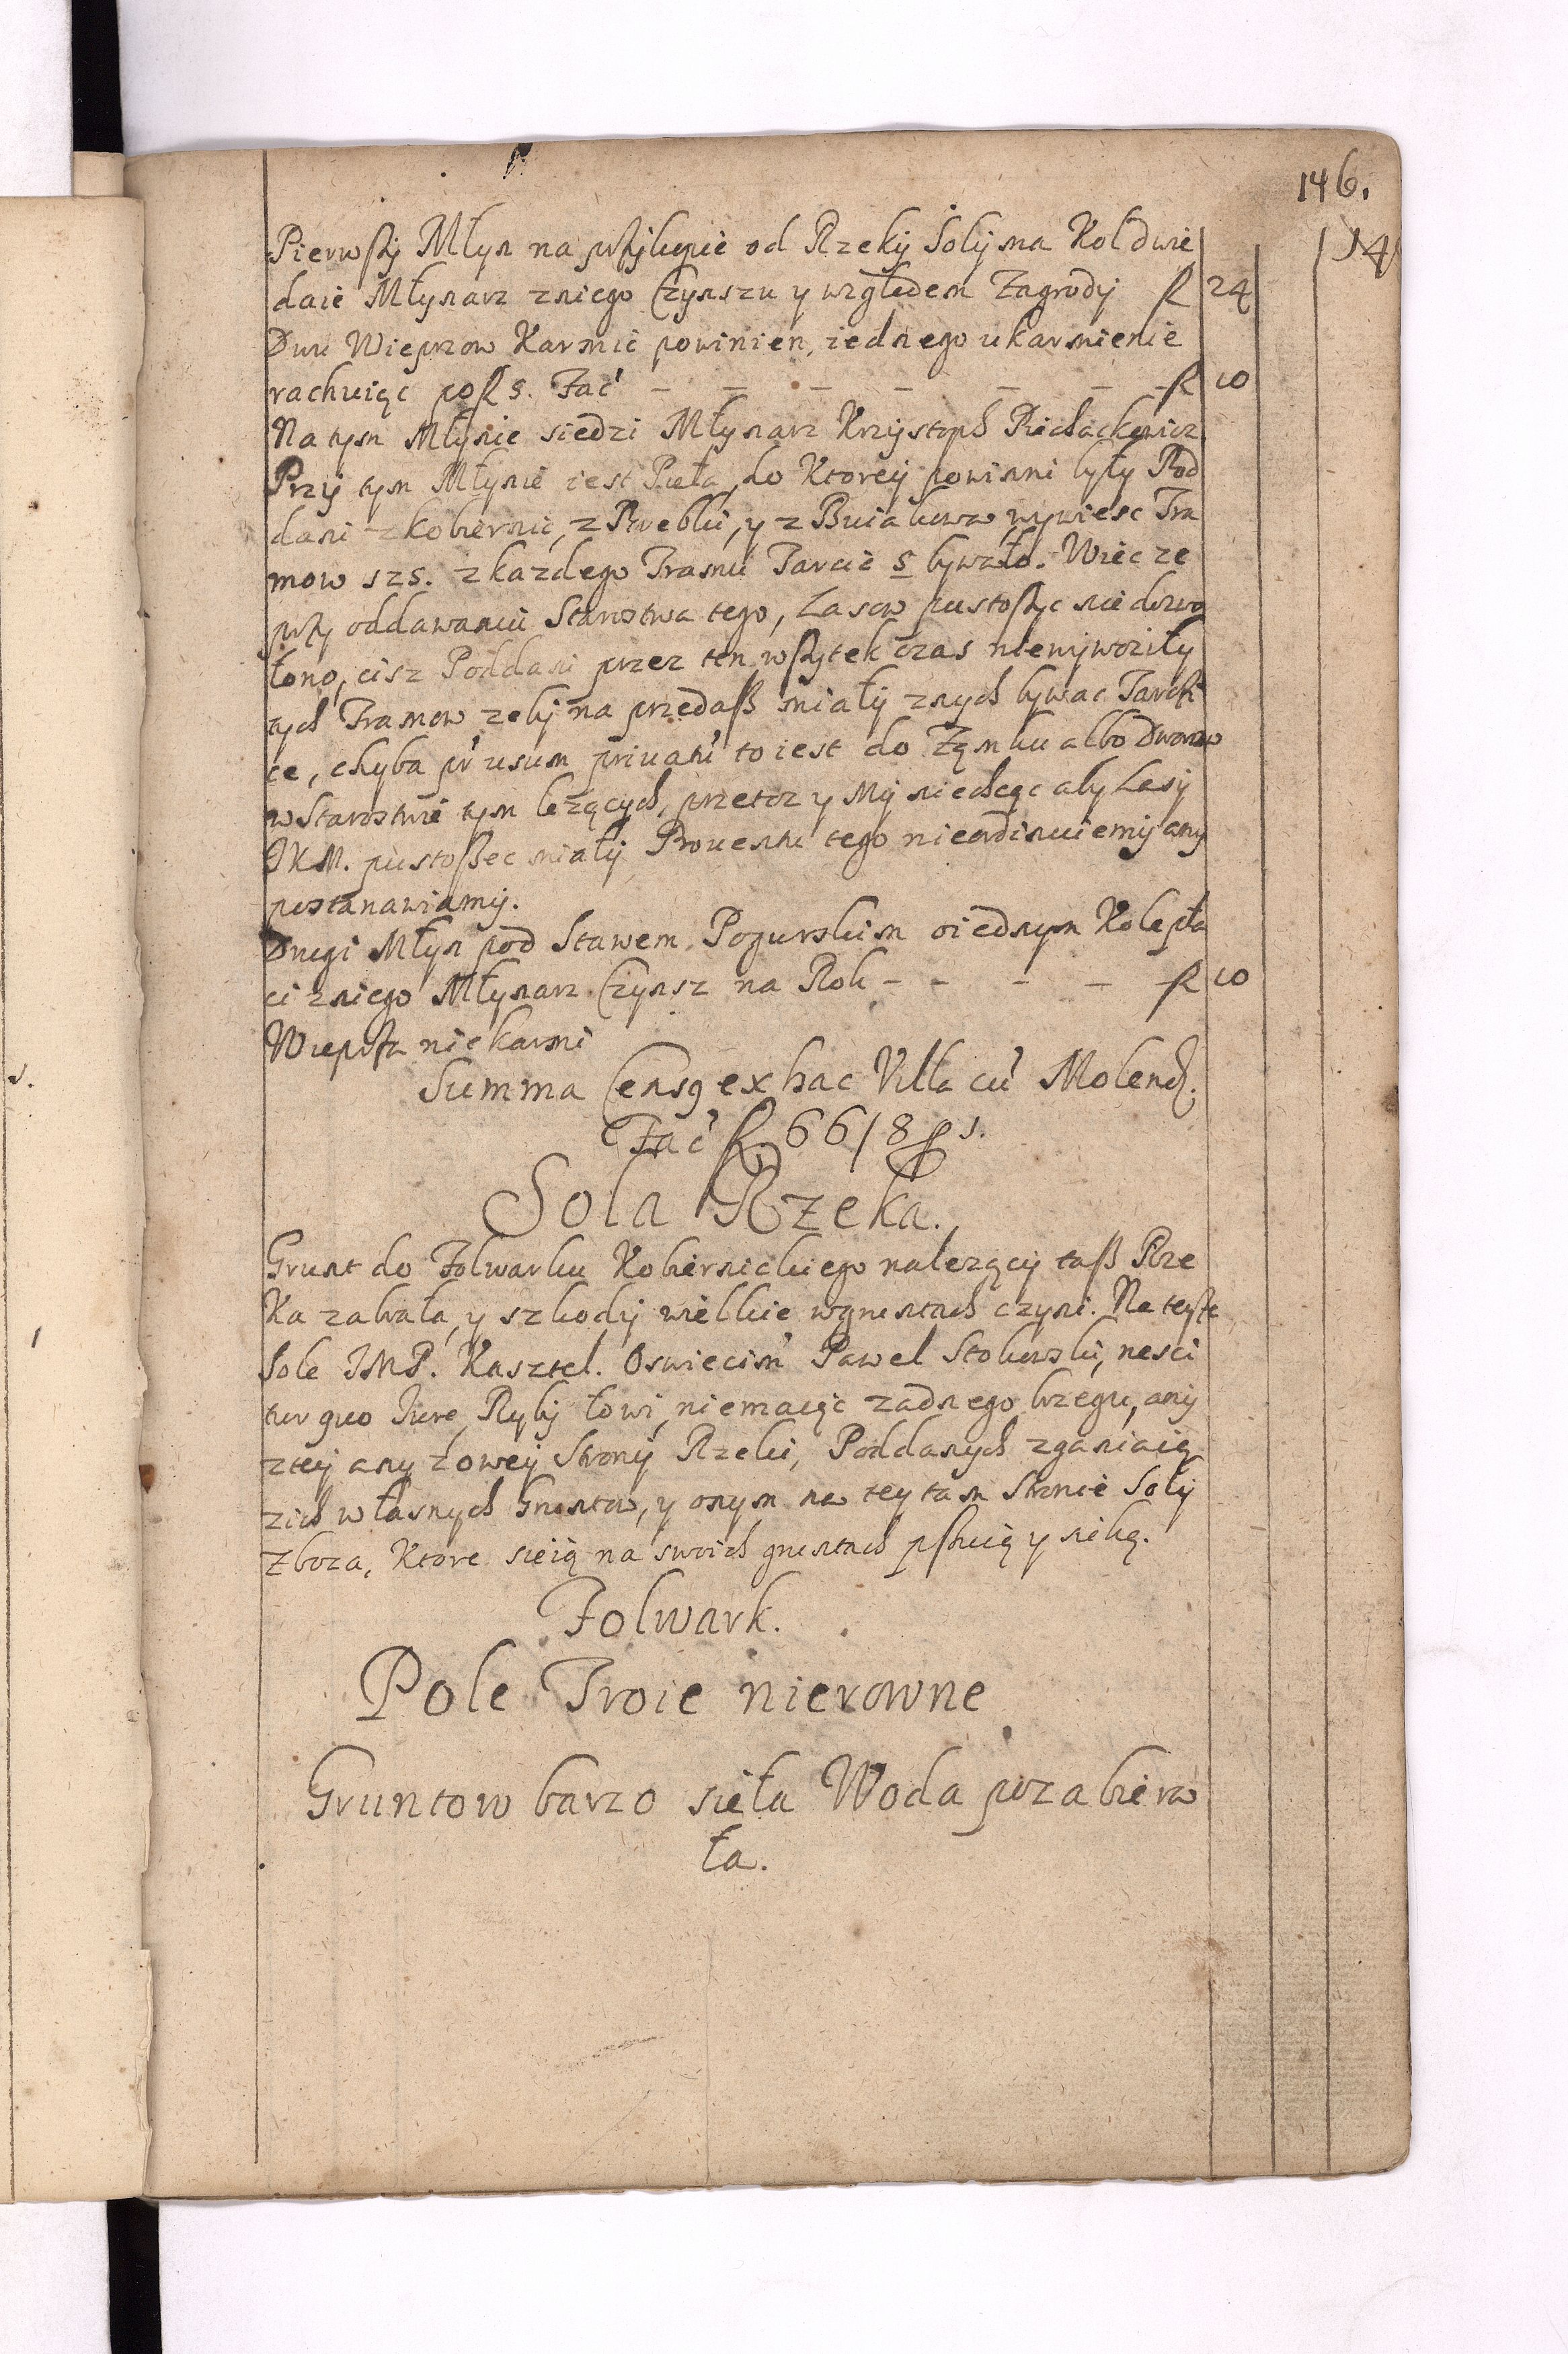 146.
14
Pierwszy Młyn na przykupie od Rzeky Soły ma Koł dwie
daie Młynarz zniego Czynszu y względem Zagrody fl 24
Dwu Wieprzow Karmić powinien, iednego ukarmienie
rachuiąc po fl 5. Fac' – – – – – – fl 10
Na tym Młynie siedzi Młynarz Krzysztoph
Przy tym Młynie iest Pieła, do Ktorey powinni były Pod
dani z kobiernic, z Poreblu, y z Buiakowa wywiesc Tra
mow szs. z kazdego Tramu Tarcic 5 bywało. Wiec ze
przy oddawaniu Starostwa tego, Lasow pustoszyc nie dozwo
lono, cisz Poddani przez ten wszytek czas niewywoziły
tych Tramow zeby na przedasz miały znych bywac Tarci
ce, chyba pr' usum priuatu' to iest do Zamku albo Dworow
w Starostwie tym lezących, przetoz y My niechcąc aby Lasy
JKM. pustoszec miały Prouentu tego nieordinuiemy any
postanawiamy.
Drugi Młyn pod Stawem Pogurskim oiednym Kole pła
ci zniego Młynarz Czynsz na Rok – – – – fl 10
Wieprza niekarmi
Summa Censg ex hac Villa cu' Molend.
Fac' fl 66/8 gs.
Sola Rzeka.
Grunt do Folwarku Kobiernickiego nalezący tasz Rze
Ka zabrała, y szkody wielkie w gruntach czyni. Na teysz
Sole JMP. Kasztel. Oswiecim' Pawel nesci
tur quo Jure, Ryby łowi, niemaiąc zadnego brzegu, any
ztey any z owey Strony Rzeki, Poddanych zganiaią
zich własnych Gruntow, y onym na tey tam Stronie Soły
Zboza, Ktore sieią na swoich gruntach psuią y
Folwark.
Pole Troie nierowne
Gruntow barzo sieła Woda pozabiera
ła.